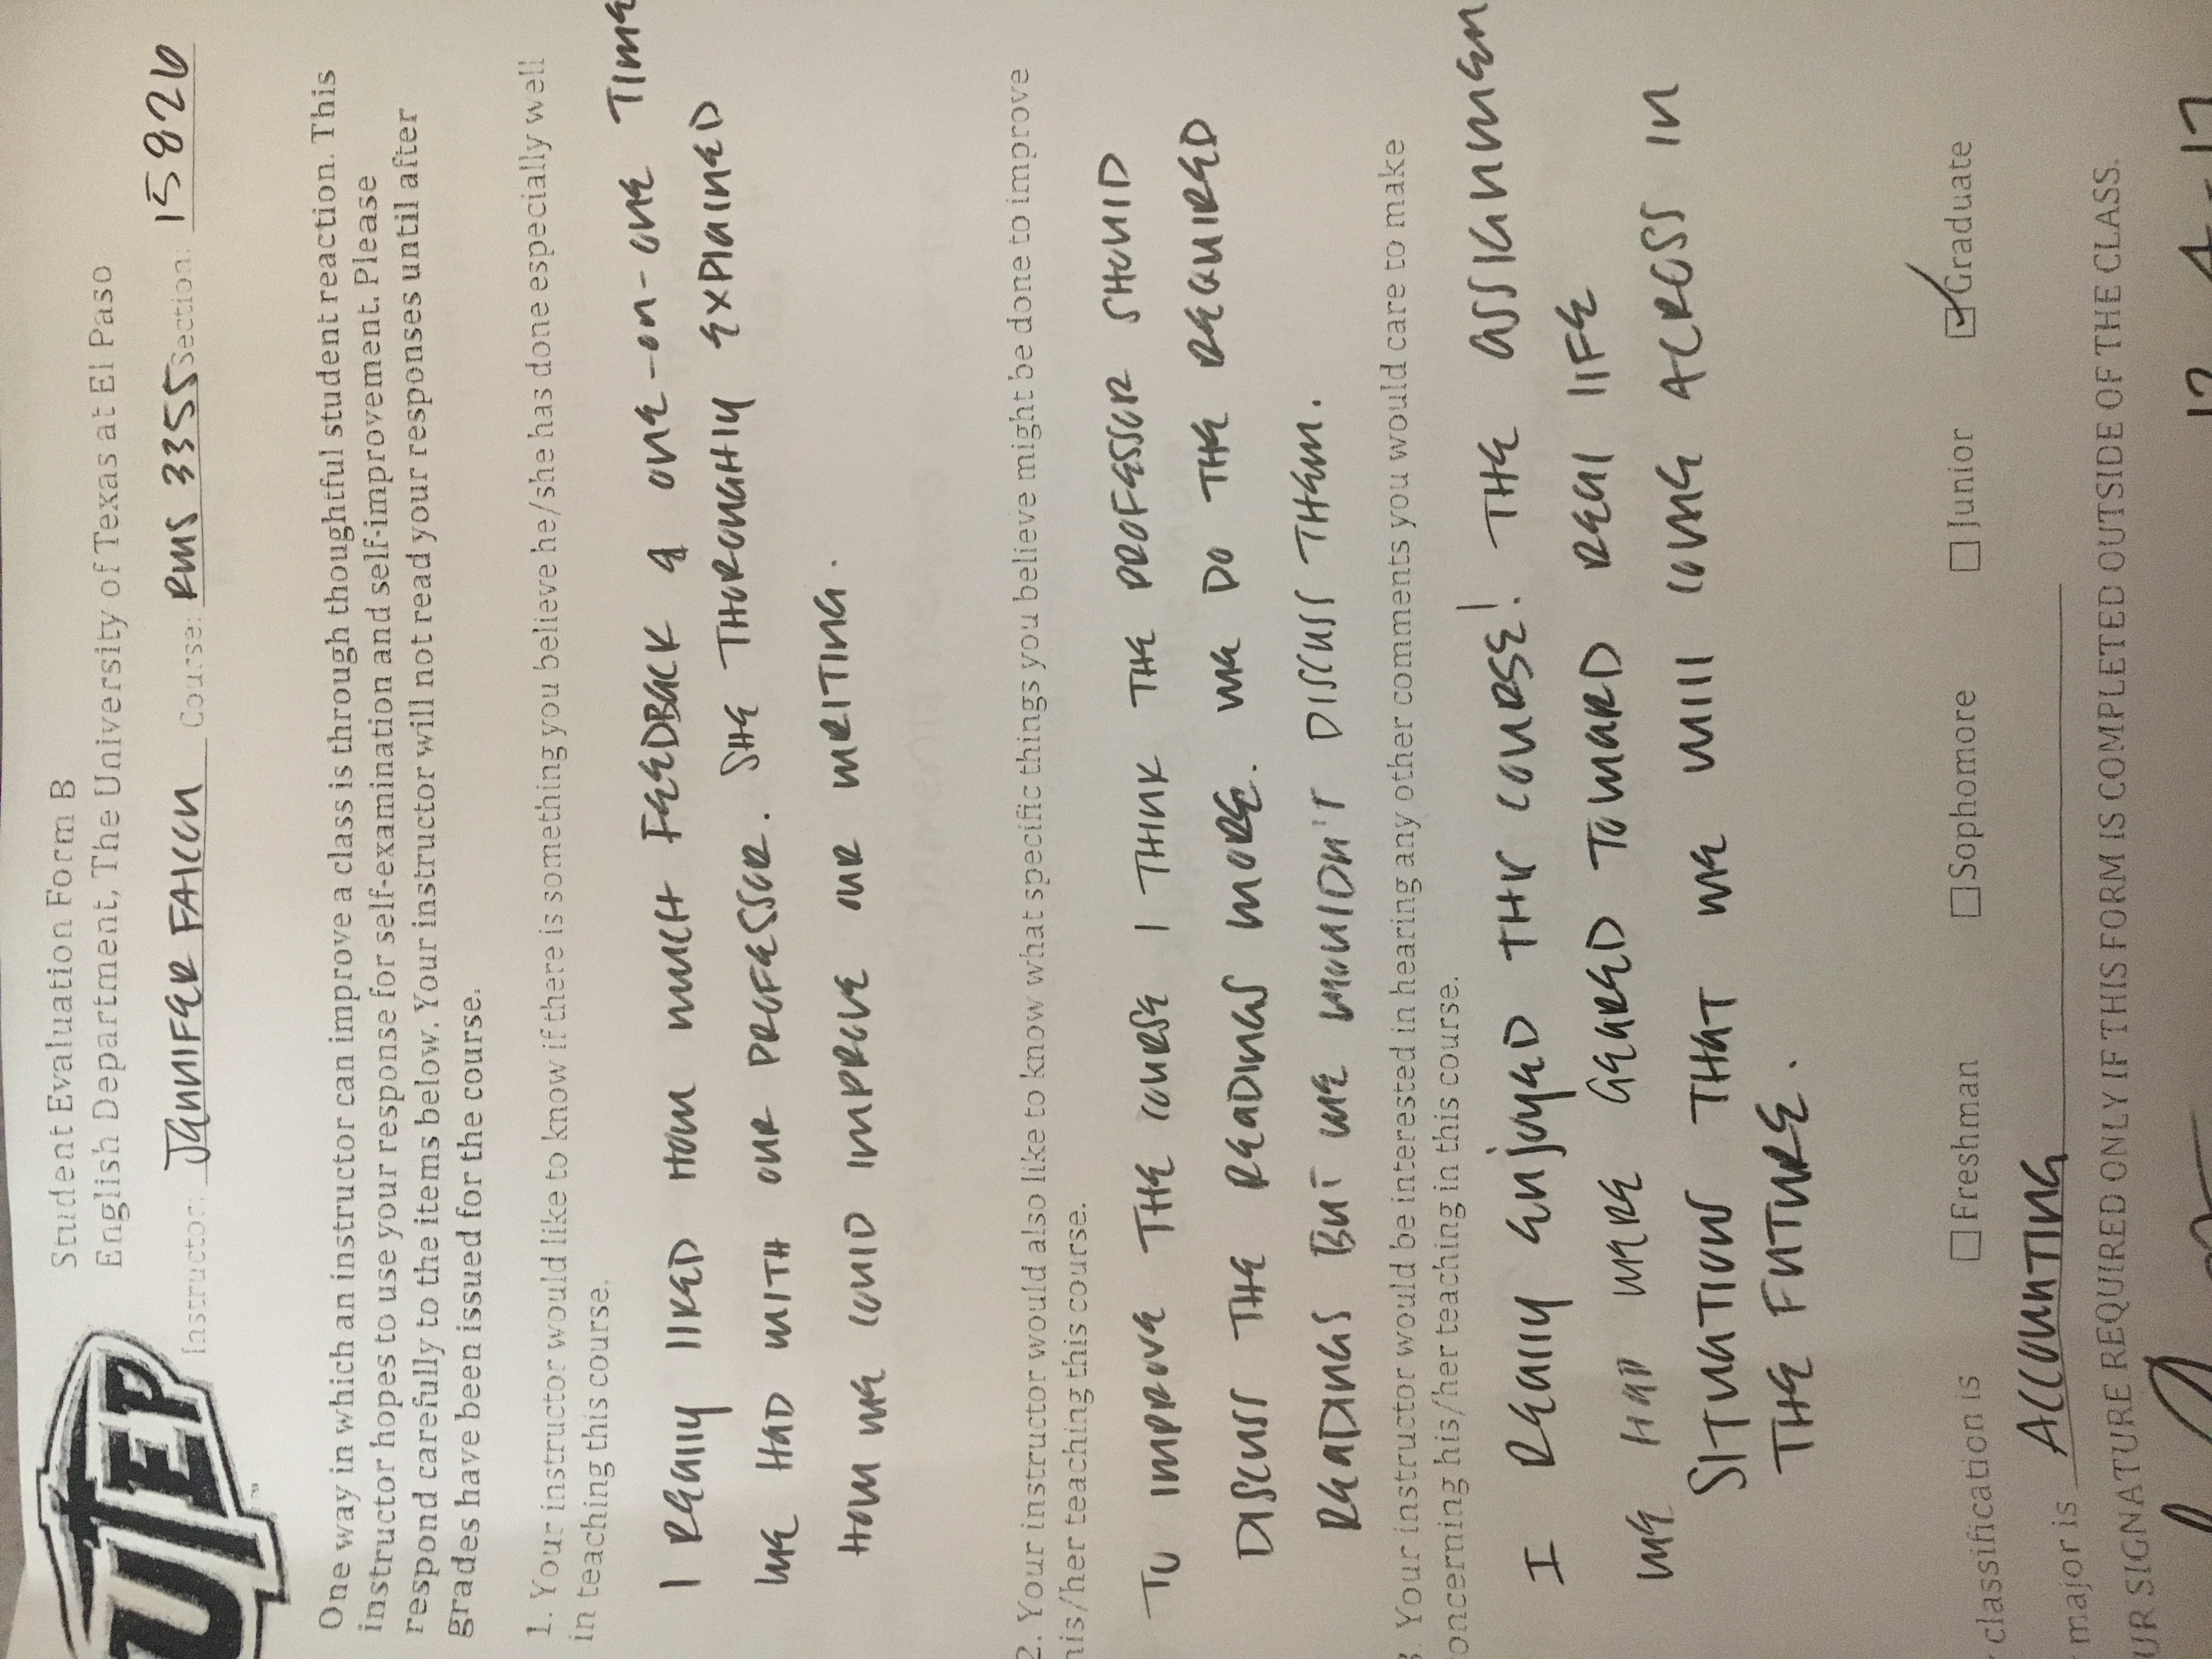 UTEP
Student Evaluation Form B
English Department, The University of Texas at El Paso
Instructor: JENNIFER FALCON Course: RWS 3355 Section: 15826
One way in which an instructor can improve a class is through thoughtful student reaction. This
instructor hopes to use your response for self-examination and self-improvement. Please
respond carefully to the items below. Your instructor will not read your responses until after
grades have been issued for the course.
1. Your instructor would like to know if there is something you believe he/she has done especially well
in teaching this course.
I REALLY LIKED HOW MUCH FEEDBACK & ONE-ON-ONE TIME
WE HAD WITH OUR PROFESSOR. SHE THOROUGHLY EXPLAINED
HOW WE COULD IMPROVE OUR WRITING.
2. Your instructor would also like to know what specific things you believe might be done to improve
his/her teaching this course.
TO IMPROVE THE COURSE I THINK THE PROFESSOR SHOULD
DISCUSS THE READINGS MORE. WE DO THE REQUIRED
READINGS BUT WE WOULDN'T DISCUSS THEM.
3. Your instructor would be interested in hearing any other comments you would care to make
concerning his/her teaching in this course.
I REALLY ENJOYED THIS COURSE! THE ASSIGNMEN
WE HAD WERE GEARED TOWARD REAL LIFE
SITUATIONS THAT WE WILL COME ACROSS IN
THE FUTURE.
classification is ☐Freshman ☐Sophomore ☐Junior ☑Graduate
major is ACCOUNTING
UR SIGNATURE REQUIRED ONLY IF THIS FORM IS COMPLETED OUTSIDE OF THE CLASS.